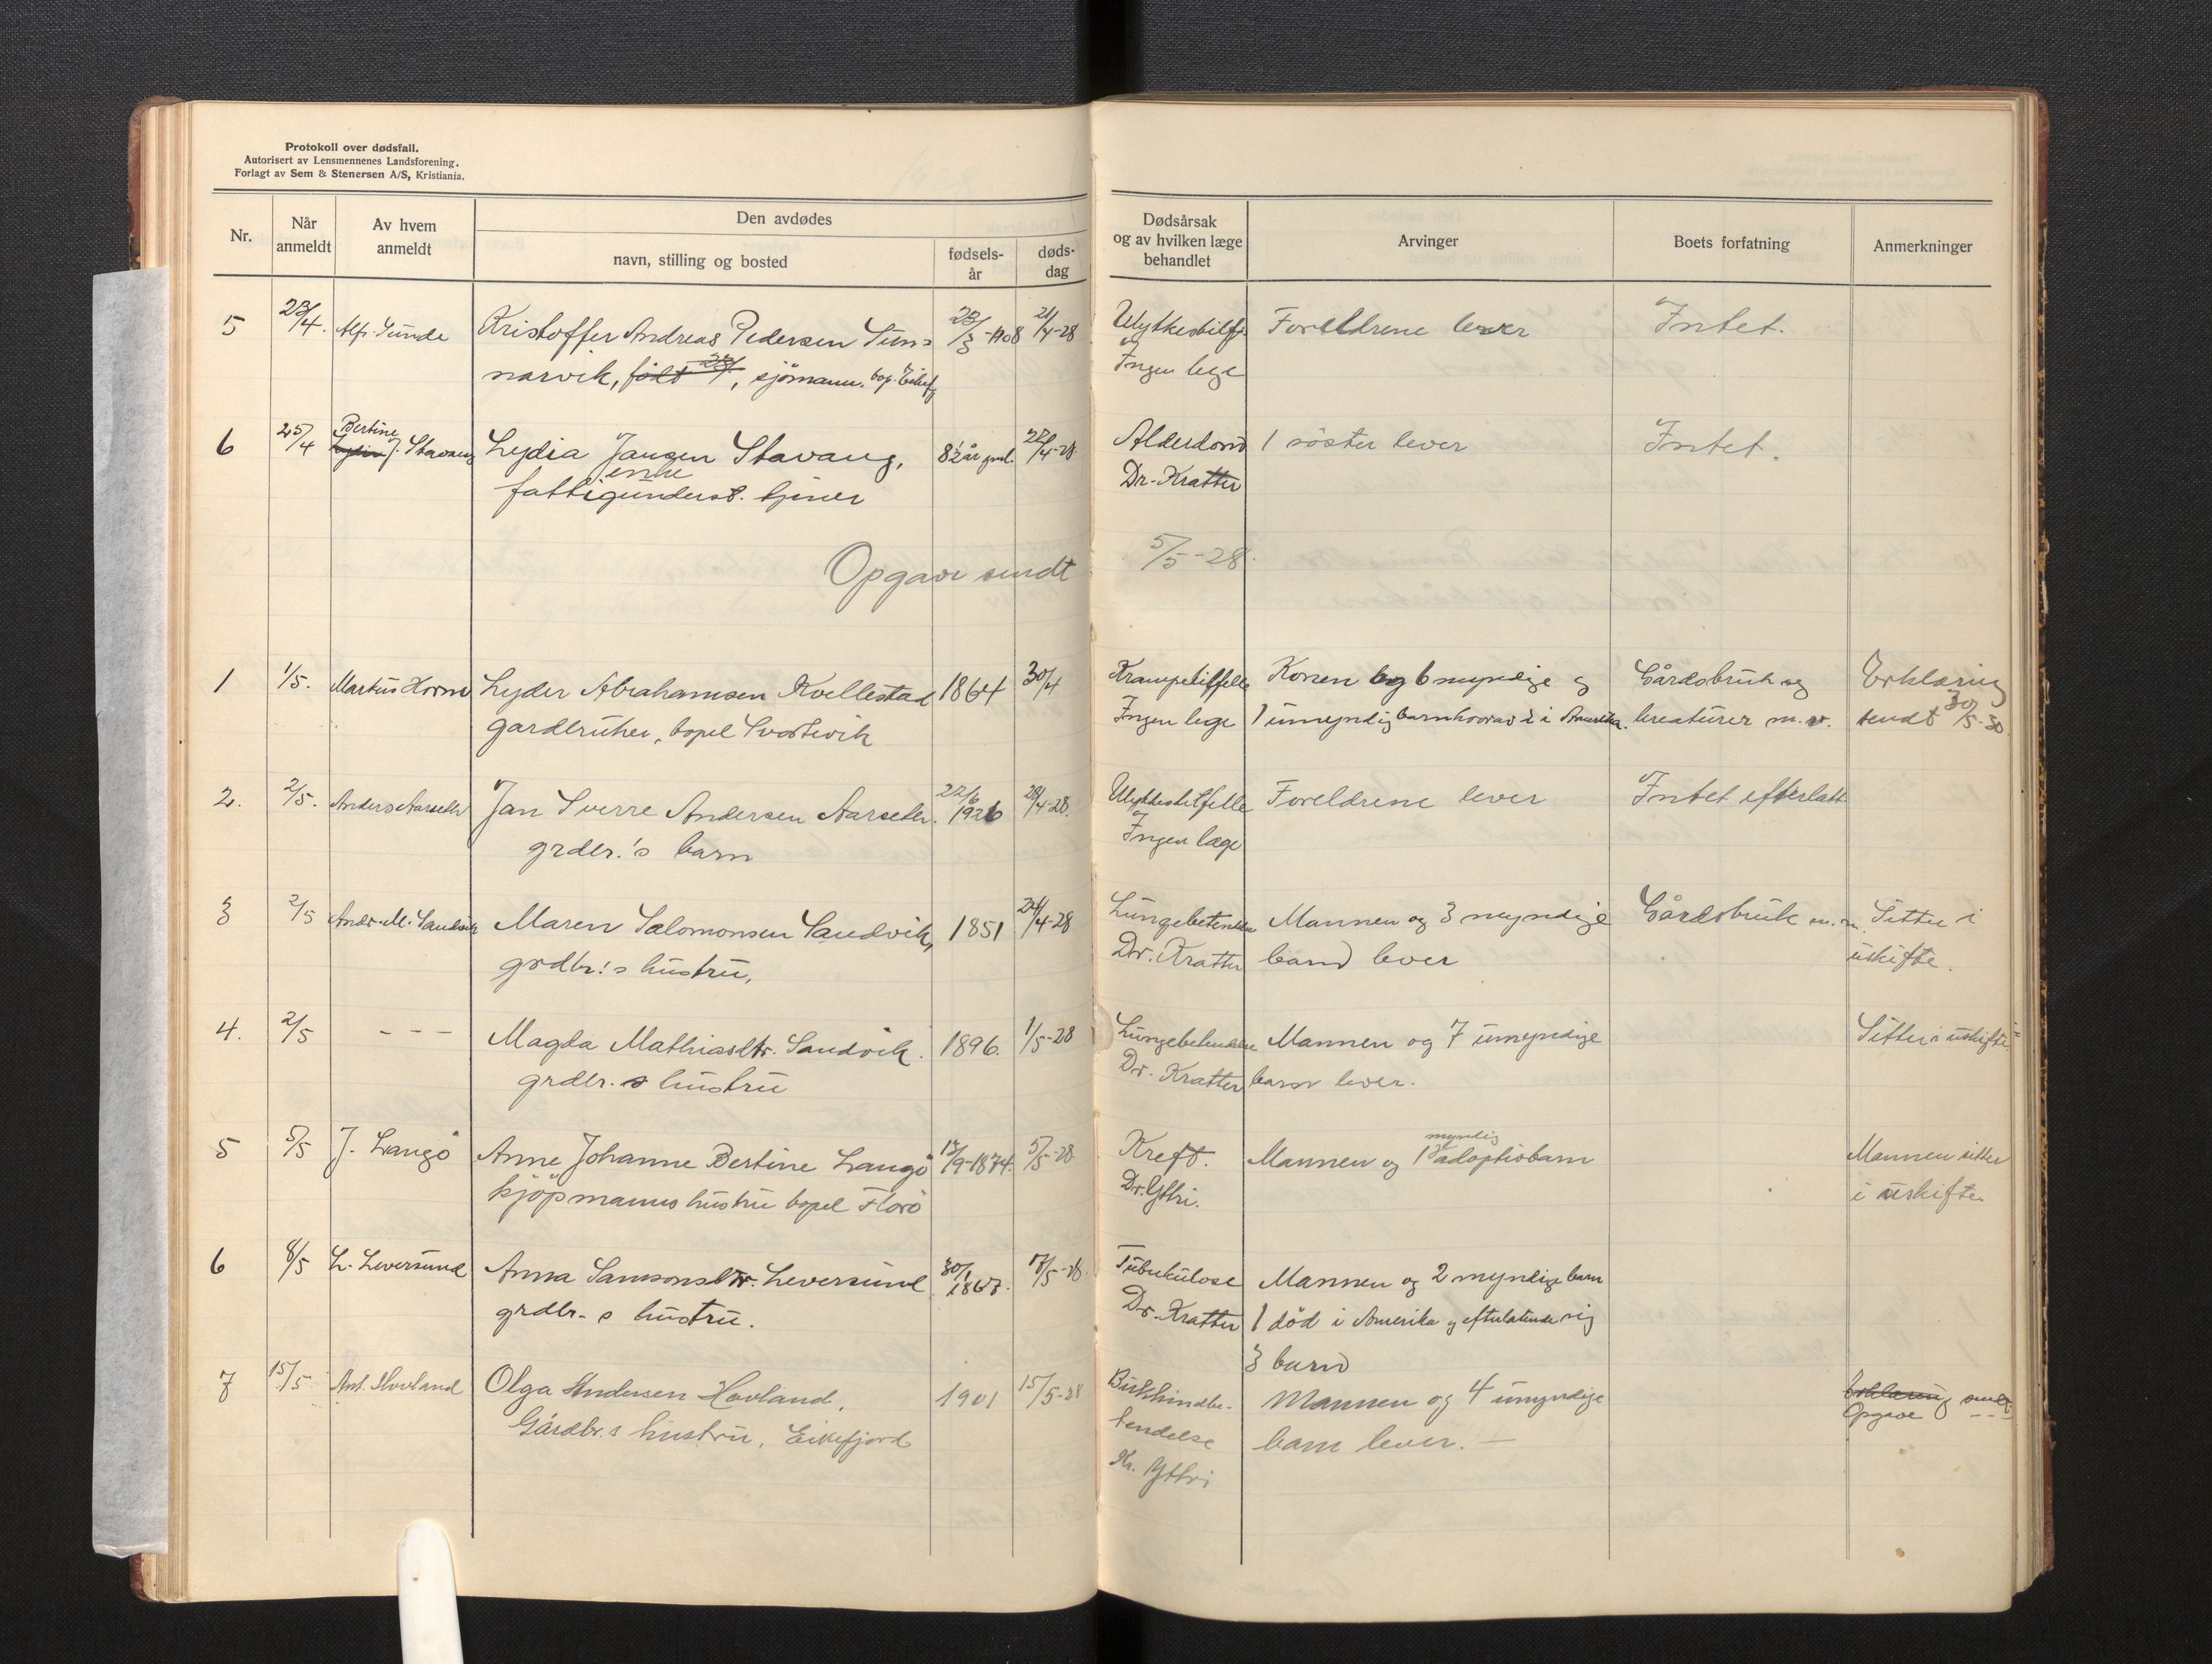 Protokoll over dødsfall.
Autorisert av Lensmennenes Landsforening.
Forlagt av Sem & Stenersen A/S, Kristiania.
Nr.
Når
anmeldt
Av hvem
anmeldt
Den avdødes
navn, stilling og bosted
fødsels-
år
døds-
dag
Dødsårsak
og av hvilken læge
behandlet
Arvinger
Boets forfatning
Anmerkninger
5 23/4. Alfr. Sunde Kristoffer Andreas Pedersen Sun= 23/3-1908 21/4-28 Ulykkestilf. Foreldrene lever Intet.
narvik, født, sjømann. bop. Eikefj Ingen lege
Bertine
6 25/4 J. Stavang Lydia Jansen Stavang, 82 år gml. 22/4-28 Alderdom 1 søster lever Intet.
enke
fattigunderst. tjener Dr. Kratter
Opgave sendt 5/5-28.
1 1/5. Martus Horne Lyder Abrahamsen Kvellestad 1864 30/4 Krampetilfelle Konen og 6 myndige og Gårdsbruk og Erklæring
gardbruker, bopel Svortevik Ingen lege 1 umyndig barn hvorav 2 i Amerika. kreaturer m.v. sendt 30/5-30
2. 2/5. Anders Aarseth Jan Sverre Andersen Aarseth. 22/6 1926 28/4-28. Ulykkestilfelle Foreldrene lever Intet efterlatt
grdbr.'s barn Ingen læge
3 2/5 Andr. M. Sandvik Maren Salomonsen Sandvik, 1851 24/4-28 Lungebetendelse Mannen og 3 myndige Gårdsbruk m.m. Sitter i
grdbr.'s hustru, Dr. Kratter barn lever uskifte.
4. 2/5 - - - Magda Mathiasdtr. Sandvik. 1896. 1/5-28 Lungebetendelse Mannen og 7 umyndige Sitter i uskifte
grdbr.s hustru Dr. Kratter barn lever.
myndig
5 5/5 J. Langö Anne Johanne Bertine Langö 13/9-1874. 5/5-28 Kreft. Mannen og 1 adoptivbarn Mannen sitter
kjöpmanns hustru bopel Florö Dr. Ytri. i uskifte
6 8/5 L. Leversund Anna Samsonsdtr. Leversund 30/1 1867. 7/5-28. Tuberkulose Mannen og 2 myndige barn
grdbr-s hustru. Dr. Kratter 1 död i Amerika og efterlatende sig
3 barn
7 15/5 Ant. Hovland Olga Andersen Hovland. 1901 15/5-28 Bukhindbe- Mannen og 4 umyndige Erklæring sendt
Gårdbr.s hustru, Eikefjord tendelse barn lever. — Opgave - -
Kr. Ytri